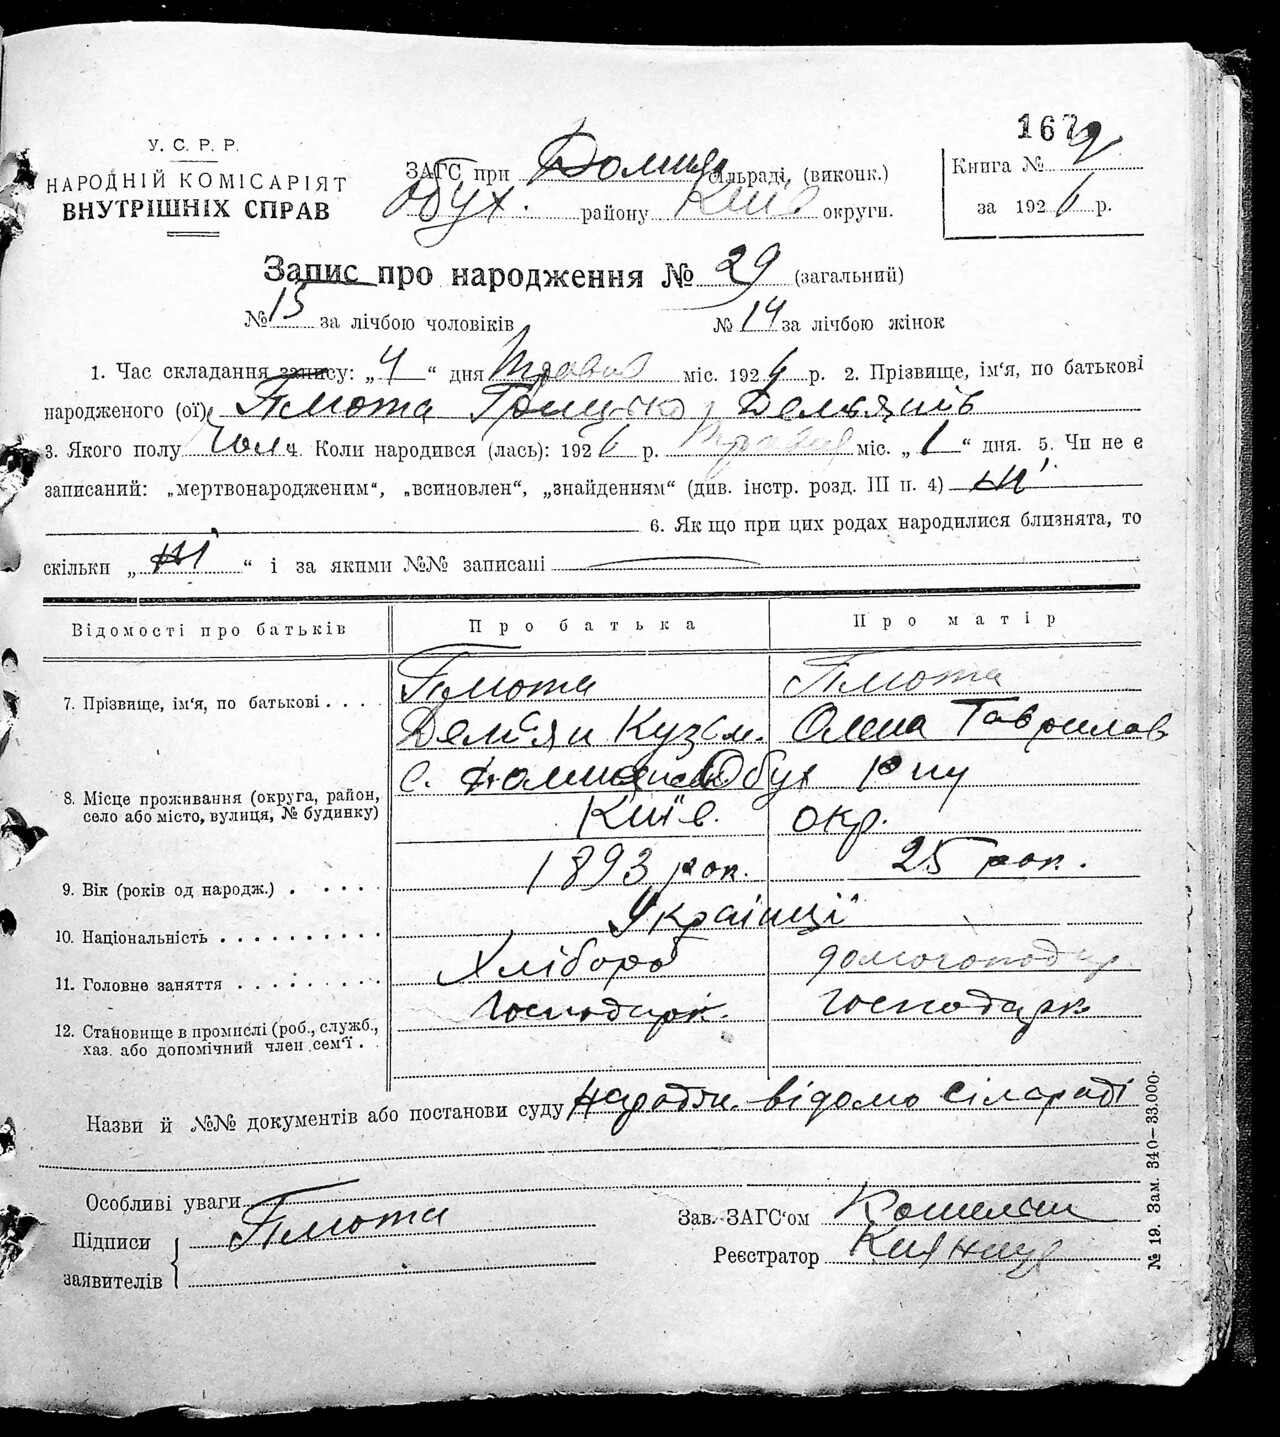 167
У. С. Р. Р.
НАРОДНІЙ КОМІСАРІЯТ
ВНУТРІШНІХ СПРАВ
ЗАГС при Долин сільраді, (виконк.)
Обух. району Київ округи.
Книга №
за 1926 р.
Запис про народження № 29 (загальний)
№ 15 за лічбою чоловіків № 14 за лічбою жінок
1. Час складання запису: „4“ дня Травня міс. 192 р. 2. Прізвище, ім‘я, по батькові
народженого (ої) Пмота Грицько Дем'янів
3. Якого полу Чол 4. Коли народився (лась): 1926 р. Травня міс. „1“ дня. 5. Чи не є
записаний: „мертвонародженим“, „всиновлен“, „знайденням“ (див. інстр. розд. III п. 4) ні
6. Як що при цих родах народилися близнята, то
скільки „ні“ і за якими №№ записані
Відомості про батьків Про батька Про матір
7. Прізвище, ім‘я, по батькові . . . . Пмота Пмота
Дем'ян Кузьм. Олена Гаврилов
8. Місце проживання (округа, район, село або місто, вулиця, № будинку) с. Обух р ну
Київ. окр.
9. Вік (років од народж.) . . . . . 1893 рок. 25 рок.
10. Національність . . . . . . . . . . Українці
11. Головне заняття . . . . . . . . . Хлібороб
12. Становище в промислі (роб., служб., хаз. або допомічний член сем‘ї . Господарк. господарк
Назви й №№ документів або постанови суду Народж. відомо сілсраді
Особливі уваги
Підписи заявителів Пмота
Зав. ЗАГС‘ом
Реєстратор
№ 19. Зам. 340—33.000.